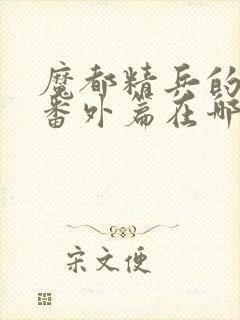 魔都精兵的
番外篇在哪
宋文便